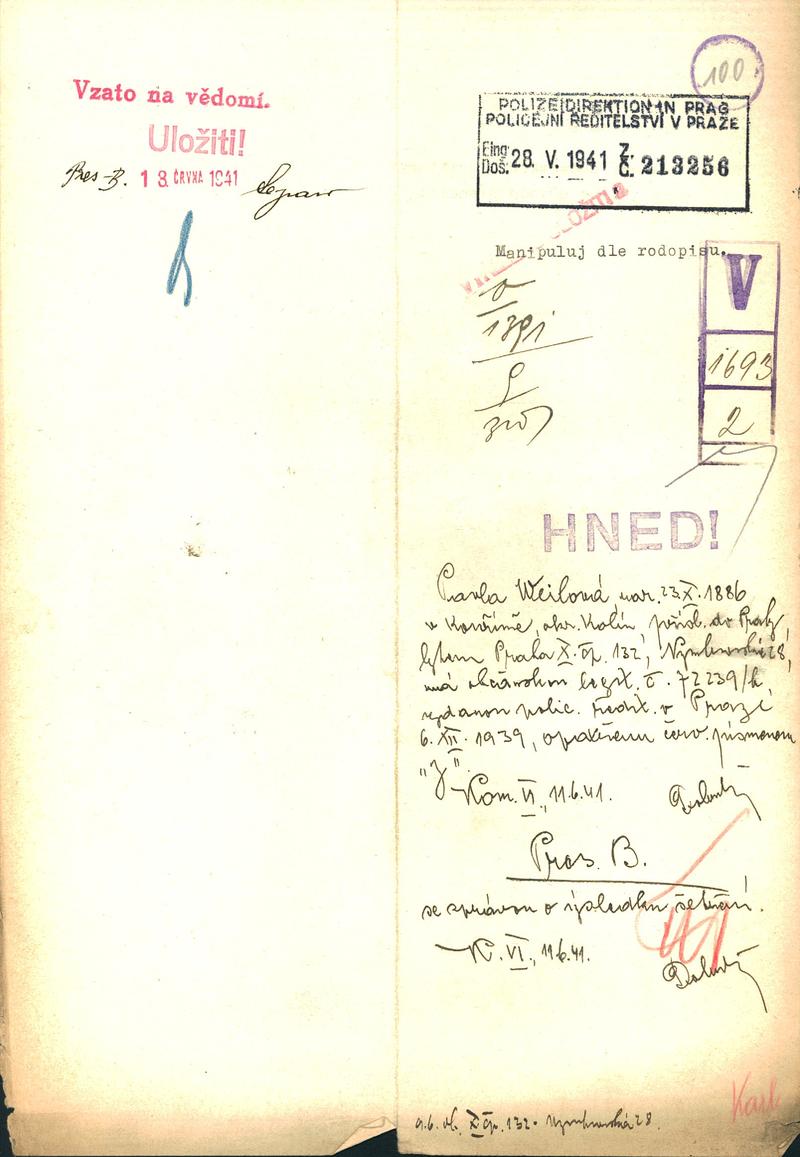 Vzato na vědomí.
Uložiti!
Pres-B. 1 8. ČRVNA 1941
100
POLIZEIDIREKTION IN PRAG
POLICEJNÍ ŘEDITELSTVÍ V PRAZE
Eing. Doš. 28. V. 1941 Z. Č. 213256
Manipuluj dle rodopisu.
V
1693
2
HNED!
Pavla Weilová, nar. 23.X.1886
v Kouřimě, okr. Kolín, přísl. do Prahy,
bytem Praha X. čp. 132, Nymburská 28,
má občanskou legit. č. 72239/h,
vydanou polic. ředit. v Praze
6.XII.1939, opatřenou červ. písmenem
"J".
Kom. VI, 11.6.41.
Pres. B.
se zprávou o výsledku šetření.
K. VI., 11.6.41.
Karl
9.6. ob. X čp. 132 - Nymburská 28.